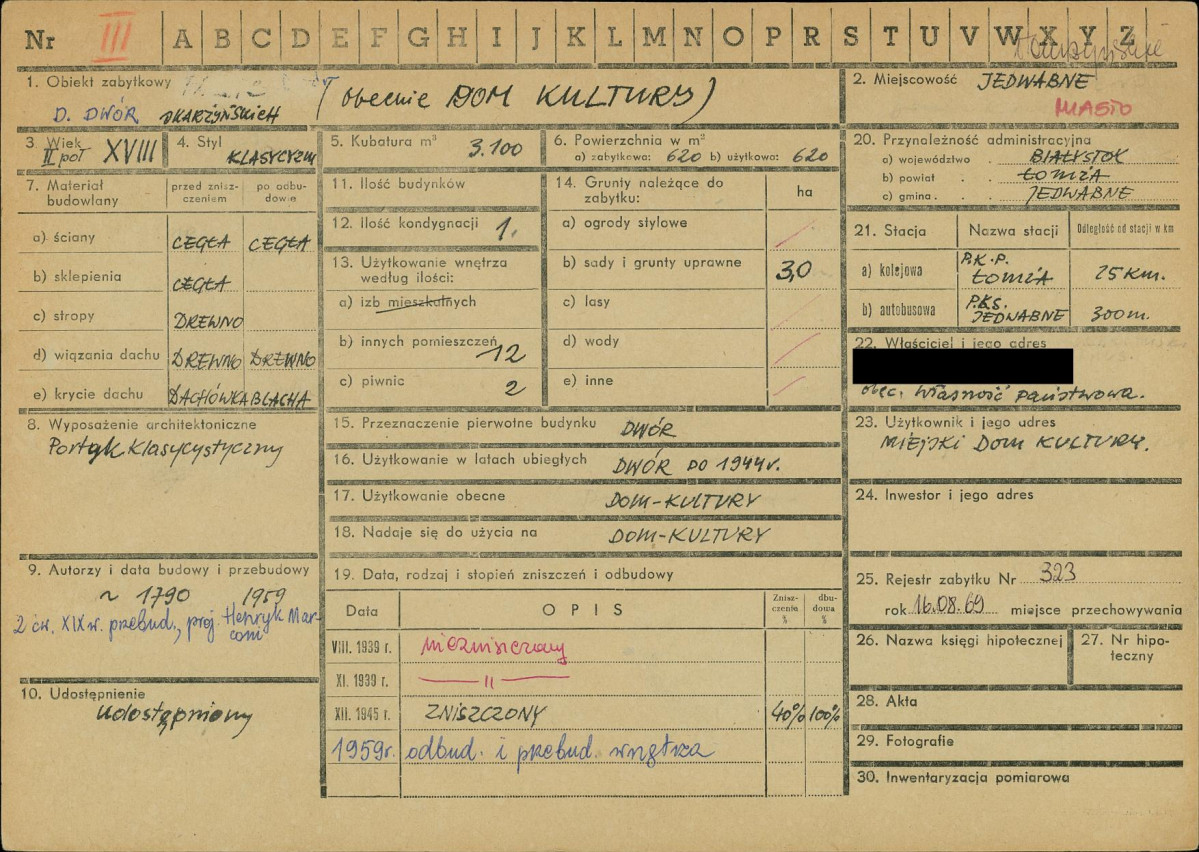 Nr III A B C D E F G H I J K L M N O P R S T U V W X Y Z
1. Obiekt zabytkowy
D. DWÓR SKARŻYŃSKICH (obecnie DOM KULTURY)
2. Miejscowość JEDWABNE
MIASTO
3. Wiek II poł XVIII
4. Styl KLASYCYZM
5. Kubatura m³ 3.100
6. Powierzchnia w m²
a) zabytkowa: 620 b) użytkowa: 620
20. Przynależność administracyjna
a) województwo . BIAŁYSTOK
b) powiat . . ŁOMŻA
c) gmina . . JEDWABNE
7. Materiał budowlany
przed znisz-
czeniem
po odbu-
dowie
a) ściany CEGŁA CEGŁA
b) sklepienia CEGŁA
c) stropy DREWNO
d) wiązania dachu DREWNO DRZEWNO
e) krycie dachu DACHÓWKA BLACHA
11. Ilość budynków
12. Ilość kondygnacji 1.
13. Użytkowanie wnętrza
według ilości:
a) izb mieszkalnych
b) innych pomieszczeń 12
c) piwnic 2
14. Grunty należące do
zabytku:
ha
a) ogrody stylowe
b) sady i grunty uprawne 3,0
c) lasy
d) wody
e) inne
21. Stacja Nazwa stacji Odległość od stacji w km
a) kolejowa P.K.P. ŁOMŻA 25 KM.
b) autobusowa P.K.S. JEDWABNE 300 m.
22. Właściciel i jego adres
obec. własność państwowa.
8. Wyposażenie architektoniczne
Portyk klasycystyczny
15. Przeznaczenie pierwotne budynku DWÓR
16. Użytkowanie w latach ubiegłych DWÓR DO 1944 r.
17. Użytkowanie obecne DOM-KULTURY
18. Nadaje się do użycia na DOM-KULTURY
23. Użytkownik i jego adres
MIEJSKI DOM KULTURY.
24. Inwestor i jego adres
9. Autorzy i data budowy i przebudowy
~ 1790 1959
2 ćw. XIX w. przebud., proj. Henryk Mar-
coni
10. Udostępnienie
Udostępniony
19. Data, rodzaj i stopień zniszczeń i odbudowy
Data OPIS Znisz-
czeniu
%
dbu-
dowa
%
VIII. 1939 r. niezniszczony
XI. 1939 r. — 11 —
XII. 1945 r. ZNISZCZONY 40% 100%
1959 r. odbud. i przebud. wnętrza
25. Rejestr zabytku Nr 323
rok 16.08.69 miejsce przechowywania
26. Nazwa księgi hipotecznej
27. Nr hipo-
teczny
28. Akta
29. Fotografie
30. Inwentaryzacja pomiarowa